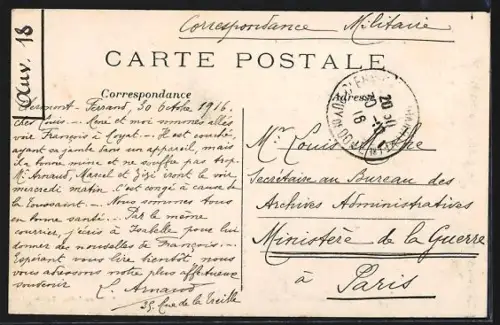 Auv. 18
Correspondance Militaire
CARTE POSTALE
Correspondance
Clermont-Ferrand, 30 Octobre 1916.
cher Louis. — René et moi sommes allés
voir François à Royat. — Il est couché,
ayant sa jambe dans un appareil, mais
a bonne mine et ne souffre pas trop.
Mr Arnaud, Marcel et Zizi iront le voir
mercredi matin. C'est congé à cause de
la Toussaint. — Nous sommes tous
en bonne santé. — Par le même
courrier, j'écris à Isabelle pour lui
donner des nouvelles de François. —
Espérant vous lire bientôt nous
vous adressons notre plus affectueux
souvenir
L. Arnaud
35, Rue de la Treille
Adresse
20 30
30 - 10
16
Mr Louis
Secrétaire au Bureau des
Archives Administratives
Ministère de la Guerre
à Paris